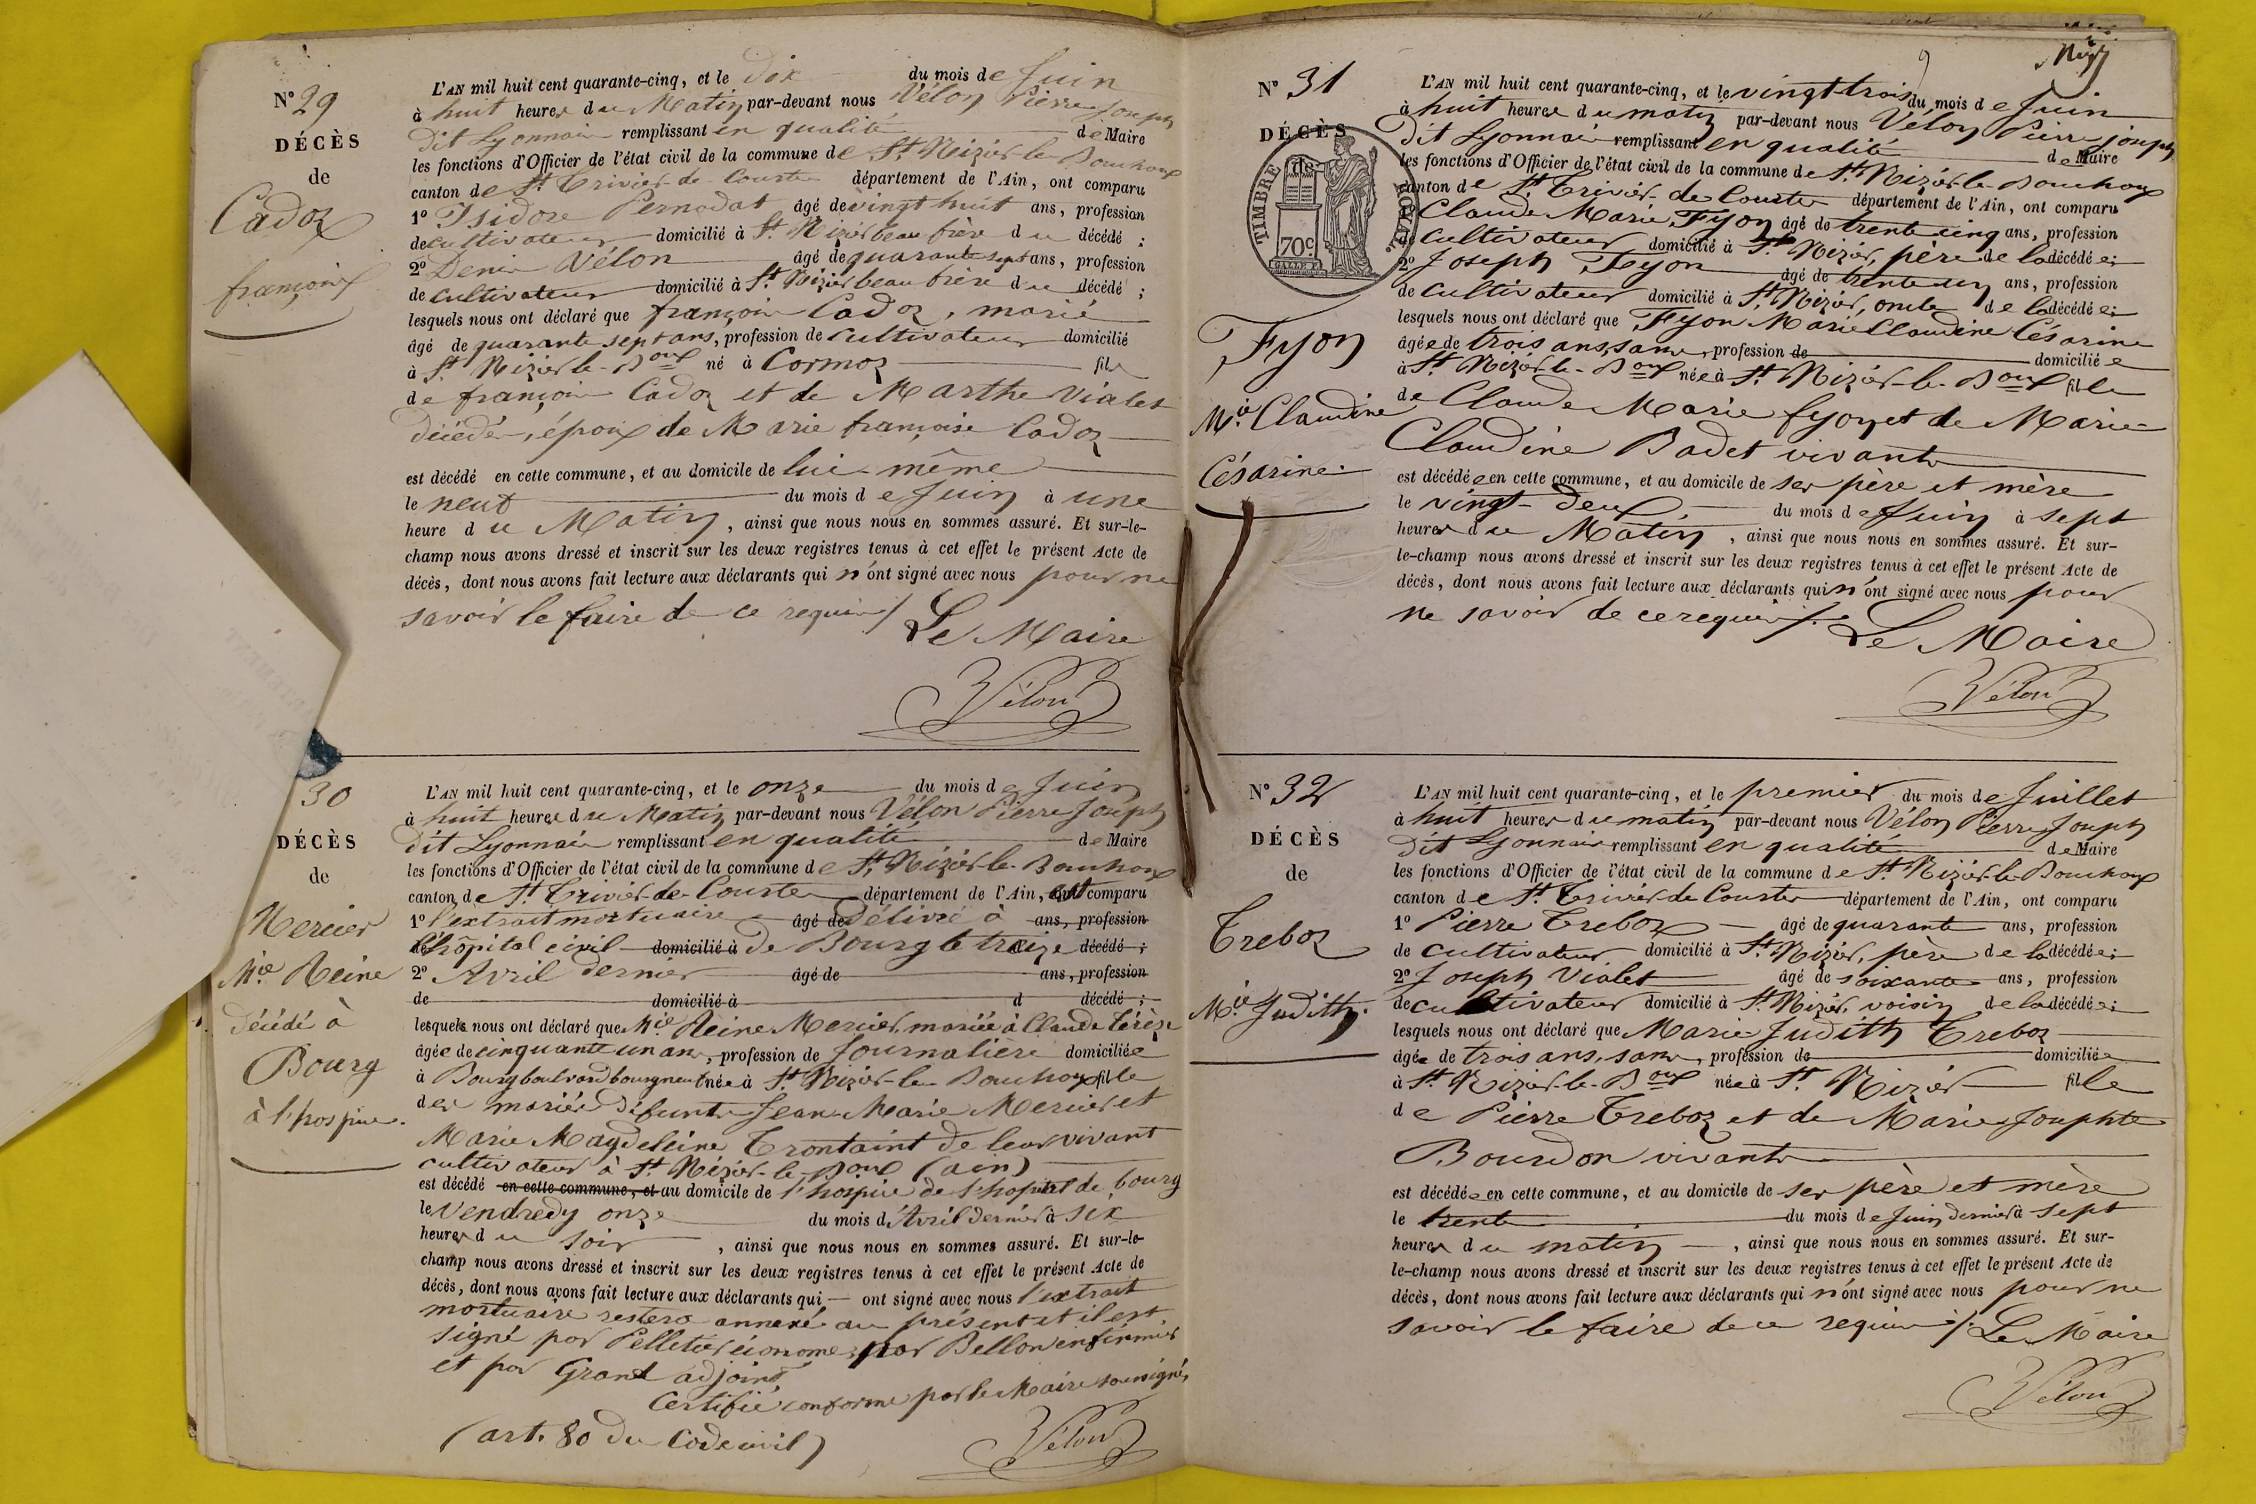 N.° 29
DÉCÈS
de
Cadoz
françois
L'AN mil huit cent quarante-cinq, et le dix du mois de Juin
à huit heures du Matin par-devant nous Vélon Pierre Joseph
dit Lyonnais remplissant en qualité de Maire
les fonctions d'Officier de l'état civil de la commune de St Nizier-le-Bouchoux
canton de St Trivier-de-Courtes département de l'Ain, ont comparu
1° Isidore Pernodat âgé de vingt huit ans, profession
de cultivateur domicilié à St Nizier beau frère du décédé ;
2° Denis Vélon âgé de quarante sept ans, profession
de cultivateur domicilié à St Nizier beau frère du décédé ;
lesquels nous ont déclaré que françois Cadoz, marié
âgé de quarante sept ans, profession de cultivateur domicilié
à St Nizier-le-Boux né à Cormoz fils
de françois Cadoz et de Marthe Vialet
décédés, époux de Marie françoise Cadoz
est décédé en cette commune, et au domicile de lui-même
le neuf du mois de Juin à une
heure du Matin, ainsi que nous nous en sommes assuré. Et sur-le-
champ nous avons dressé et inscrit sur les deux registres tenus à cet effet le présent Acte de
décès, dont nous avons fait lecture aux déclarants qui n'ont signé avec nous pour ne
savoir le faire de ce requis /. Le Maire
Vélon
30
DÉCÈS
de
Mercier
Mie Reine
décédé à
Bourg
à l'hospice.
L'AN mil huit cent quarante-cinq, et le onze du mois de Juin
à huit heures du Matin par-devant nous Vélon Pierre Joseph
dit Lyonnais remplissant en qualité de Maire
les fonctions d'Officier de l'état civil de la commune de St Nizier-le-Bouchoux
canton de St Trivier-de-Courtes département de l'Ain, ont comparu
1° l'extrait mortuaire âgé de délivré à ans, profession
de l'hôpital civil domicilié à de Bourg le treize décédé ;
2° Avril dernier âgé de ans, profession
de domicilié à d décédé ;
lesquels nous ont déclaré que Mie Reine Mercier, mariée à Claude
âgée de cinquante un ans, profession de Journalière domiciliée
à Bourg boulvard bourgneuf née à St Nizier-le-Bouchoux fille
des mariés défunts Jean Marie Mercier et
Marie Magdeleine Trontaint de leur vivant
cultivateurs à St Nizier-le-Boux (ain)
est décédé en cette commune, et au domicile de l'hospice de l'hopital de bourg
le vendredy onze du mois d'Avril dernier à six
heures du soir, ainsi que nous nous en sommes assuré. Et sur-le-
champ nous avons dressé et inscrit sur les deux registres tenus à cet effet le présent Acte de
décès, dont nous avons fait lecture aux déclarants qui — ont signé avec nous l'extrait
mortuaire restera annexé au présent et il est
signé par Pelletier économe, par Bellon infirmier
et par Grand adjoint
Certifié conforme par le Maire soussigné,
(art. 80 du Code civil)
Vélon
9
N.° 31
DÉCÈS
de
TIMBRE ROYAL.
70c
Fyon
Mie Claudine
Césarine.
L'AN mil huit cent quarante-cinq, et le vingt-trois du mois de Juin
à huit heures du matin par-devant nous Vélon Pierre Joseph
dit Lyonnais remplissant en qualité de Maire
les fonctions d'Officier de l'état civil de la commune de St Nizier-le-Bouchoux
canton de St Trivier-de-Courtes département de l'Ain, ont comparu
1° Claude Marie Fyon âgé de trente cinq ans, profession
de cultivateur domicilié à St Nizier, père de la décédée ;
2° Joseph Fyon âgé de trente un ans, profession
de cultivateur domicilié à St Nizier, oncle de la décédée ;
lesquels nous ont déclaré que Fyon Marie Claudine Césarine
âgée de trois ans, sans profession de domiciliée
à St Nizier-le-Boux née à St Nizier-le-Boux fille
de Claude Marie fyon et de Marie
Claudine Badet vivants
est décédée en cette commune, et au domicile de ses père et mère
le vingt-deux du mois de Juin à sept
heures du Matin, ainsi que nous nous en sommes assuré. Et sur-
le-champ nous avons dressé et inscrit sur les deux registres tenus à cet effet le présent Acte de
décès, dont nous avons fait lecture aux déclarants qui n'ont signé avec nous pour
ne savoir de ce requis /. Le Maire
Vélon
N.° 32
DÉCÈS
de
Treboz
Mie Judith.
L'AN mil huit cent quarante-cinq, et le premier du mois de Juillet
à huit heures du matin par-devant nous Vélon Pierre Joseph
dit Lyonnais remplissant en qualité de Maire
les fonctions d'Officier de l'état civil de la commune de St Nizier-le-Bouchoux
canton de St Trivier de Courtes département de l'Ain, ont comparu
1° Pierre Treboz âgé de quarante ans, profession
de cultivateur domicilié à St Nizier, père de la décédée ;
2° Joseph Vialet âgé de soixante ans, profession
de cultivateur domicilié à St Nizier, voisin de la décédée ;
lesquels nous ont déclaré que Marie Judith Treboz
âgée de trois ans, sans profession de domiciliée
à St Nizier-le-Boux née à St Nizier fille
de Pierre Treboz et de Marie Josephte
Bourdon vivants
est décédée en cette commune, et au domicile de ses père et mère
le trente du mois de Juin dernier à sept
heures du matin, ainsi que nous nous en sommes assuré. Et sur-
le-champ nous avons dressé et inscrit sur les deux registres tenus à cet effet le présent Acte de
décès, dont nous avons fait lecture aux déclarants qui n'ont signé avec nous pour ne
savoir le faire de ce requis /. Le Maire
Vélon